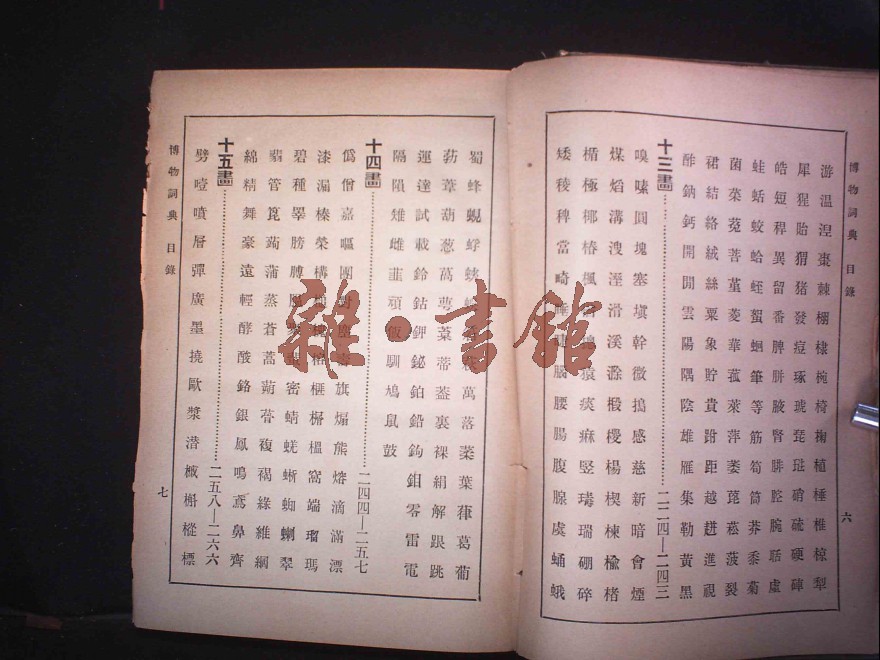 博物詞典 目錄
六
游温湼棗棘棚棣椀椅椈植棰椎椋犂
犀猩貽猬猪發痘琢琥琵琺硝硫硬硨
皓短稈異留番脾胼腋腎腓腔腕聒虛
蛙蛞蛟蛤蛭蜑蛔筆等筋筍筒莽黍菊
菌菜菟菩菫菱華菰萊萍萎菎菘菠裂
裙結絡絨絲粟象貯貴跆距越趂進視
酢鈉鈣開閒雲陽隅陰雄雁集勒黄黑
十三畫 二二四—二四三
嗅嗉圓塊塞塡幹微搗感慈新暗會煙
煤熖溝溲溼滑溪滁椴楥楊楔楝楡楮
楯極椰椿楓
猿痰痳竪瑇瑞硼碎
矮稜稗當畸睡
腦腰腸腹腺虞蛹蛾
蜀蜂蜆蜉蛺
萬落葉葉葎葛葡
葯葦葫葱萵萼葈蒂蓋裏裸絹解跟跳
運達試載鈴鈷鉀鉍鉑鉛鉤鉬零雷電
隔隕雉雌韮頑飯馴鳩鼠鼓
十四畫 二四四—二五七
僞僧嘉嘔團
旗煽熊熔滴滿漂
漆漏榛榮構
榧榭榲窩端瑠瑪
碧種睪膀膊
密蜻蜣蜥蜘蝋翠
翡管箆蒟蒲蒸蒼蒿蒴蒼複褐綠維綱
綿精舞豪遠輕酵酸鉻銀鳳鳴鳶鼻齊
十五畫 二五八—二六六
劈噎噴層彈廣墨撓歐漿潜槭槲樅標
博物詞典 目錄
七
雜·書館